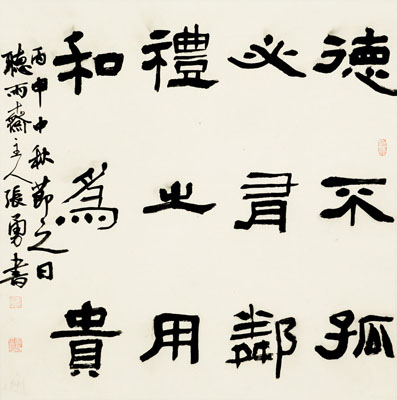 德不孤
必有鄰
禮之用
和為貴
丙申中秋節之日
聽雨齋主人張勇書